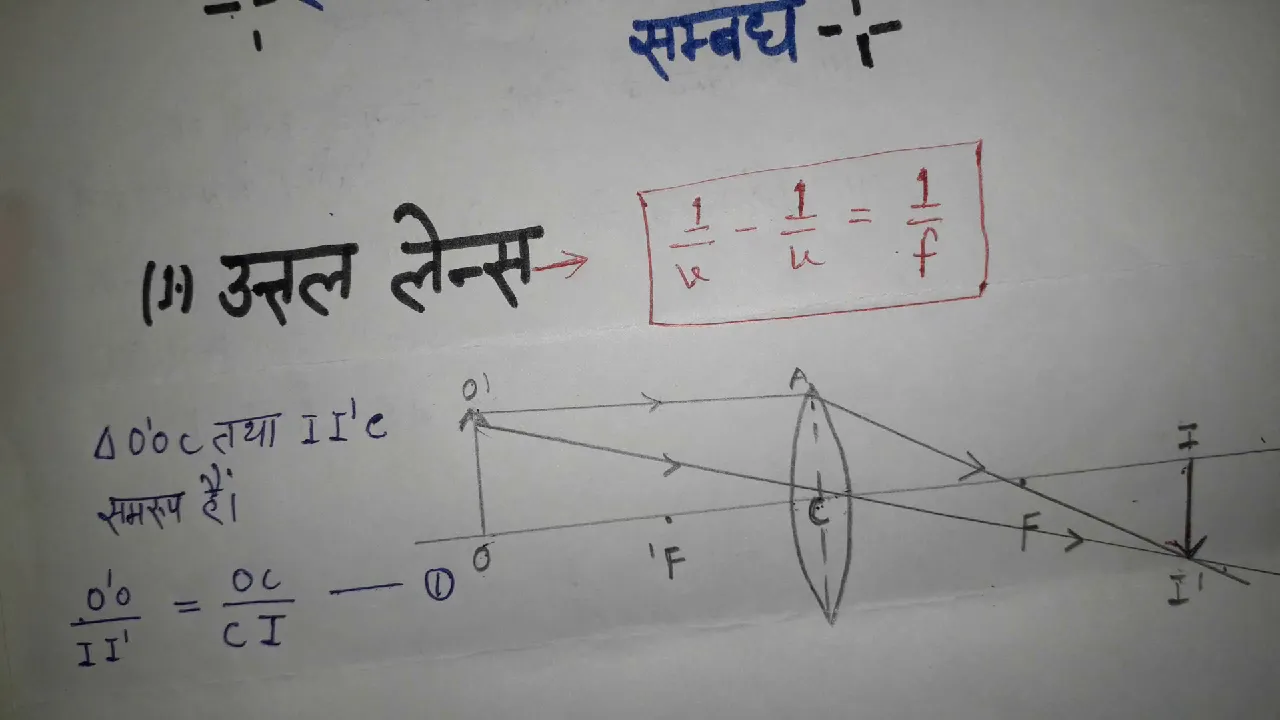 सम्बध ÷
(1.) उत्तल लेन्स → 1/v - 1/u = 1/f
Δ O'OC तथा II'C
समरूप हैं।
O'O/II' = OC/CI — ①
O'
A
I
O
'F
C
F
I'